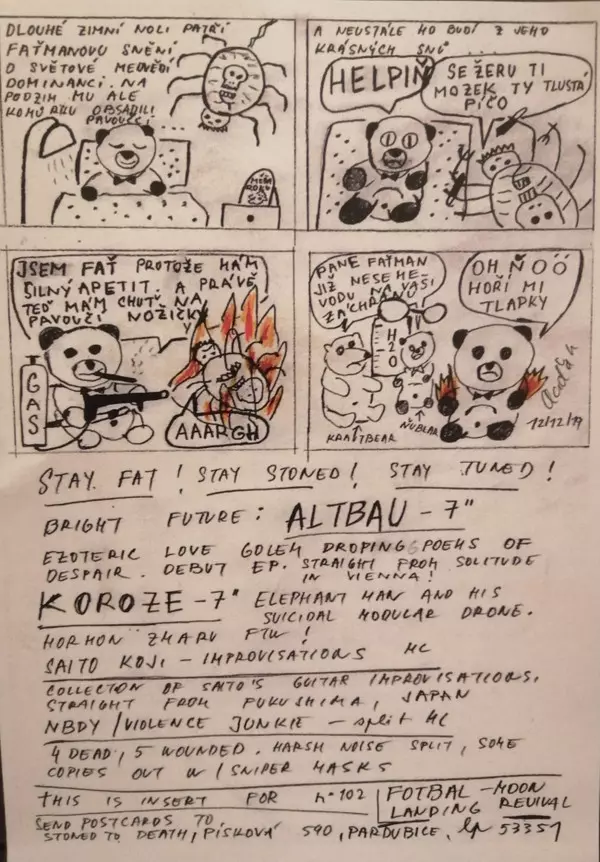 DLOUHÉ ZIMNÍ NOCI PATŘÍ
FAŤMANOVU SNĚNÍ
O SVĚTOVÉ MEDVĚDÍ
DOMINANCI. NA
PODZIM MU ALE
KOMŮRKU OBSADILI
PAVOUČCI...
MEĎA
ROKU
A NEUSTÁLE HO BUDÍ Z JEHO
KRÁSNÝCH SNŮ...
HELPIŇ
SEŽERU TI
MOZEK TY TLUSTÁ
PÍČO
JSEM FAŤ PROTOŽE MÁM
SILNÝ APETIT. A PRÁVĚ
TEĎ MÁM CHUŤ NA
PAVOUČÍ NOŽIČKY
GAS
AAARGH
PANE FAŤMAN
JIŽ NESEME
VODU NA VAŠI
ZÁCHRANU
H2O
KRAFTBEAR
ŇUBLAR
OH ŇOÖÖ
HOŘÍ MI
TLAPKY
12/12/19
STAY FAT! STAY STONED! STAY TUNED!
BRIGHT FUTURE: ALTBAU - 7"
EZOTERIC LOVE GOLEM DROPING POEMS OF
DESPAIR. DEBUT EP. STRAIGHT FROM SOLITUDE
IN VIENNA!
KOROZE - 7" ELEPHANT MAN AND HIS
SUICIDAL MODULAR DRONE.
HORMON ZMARU FTW!
SAITO KOJI - IMPROVISATIONS MC
COLLECTION OF SAITO'S GUITAR IMPROVISATIONS,
STRAIGHT FROM FUKUSHIMA, JAPAN
NBDY / VIOLENCE JUNKIE - split MC
4 DEAD, 5 WOUNDED. HARSH NOISE SPLIT, SOME
COPIES OUT W/ SNIPER MASKS
THIS IS INSERT FOR n°102
FOTBAL - MOON
LANDING REVIVAL
SEND POSTCARDS TO
STONED TO DEATH, PÍSKOVÁ 590, PARDUBICE, 53351